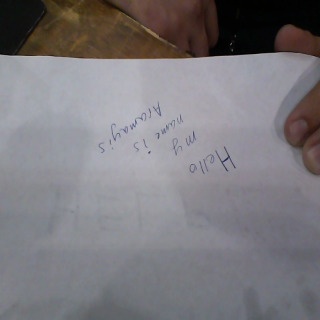 Hello
my
name is
Aramayis